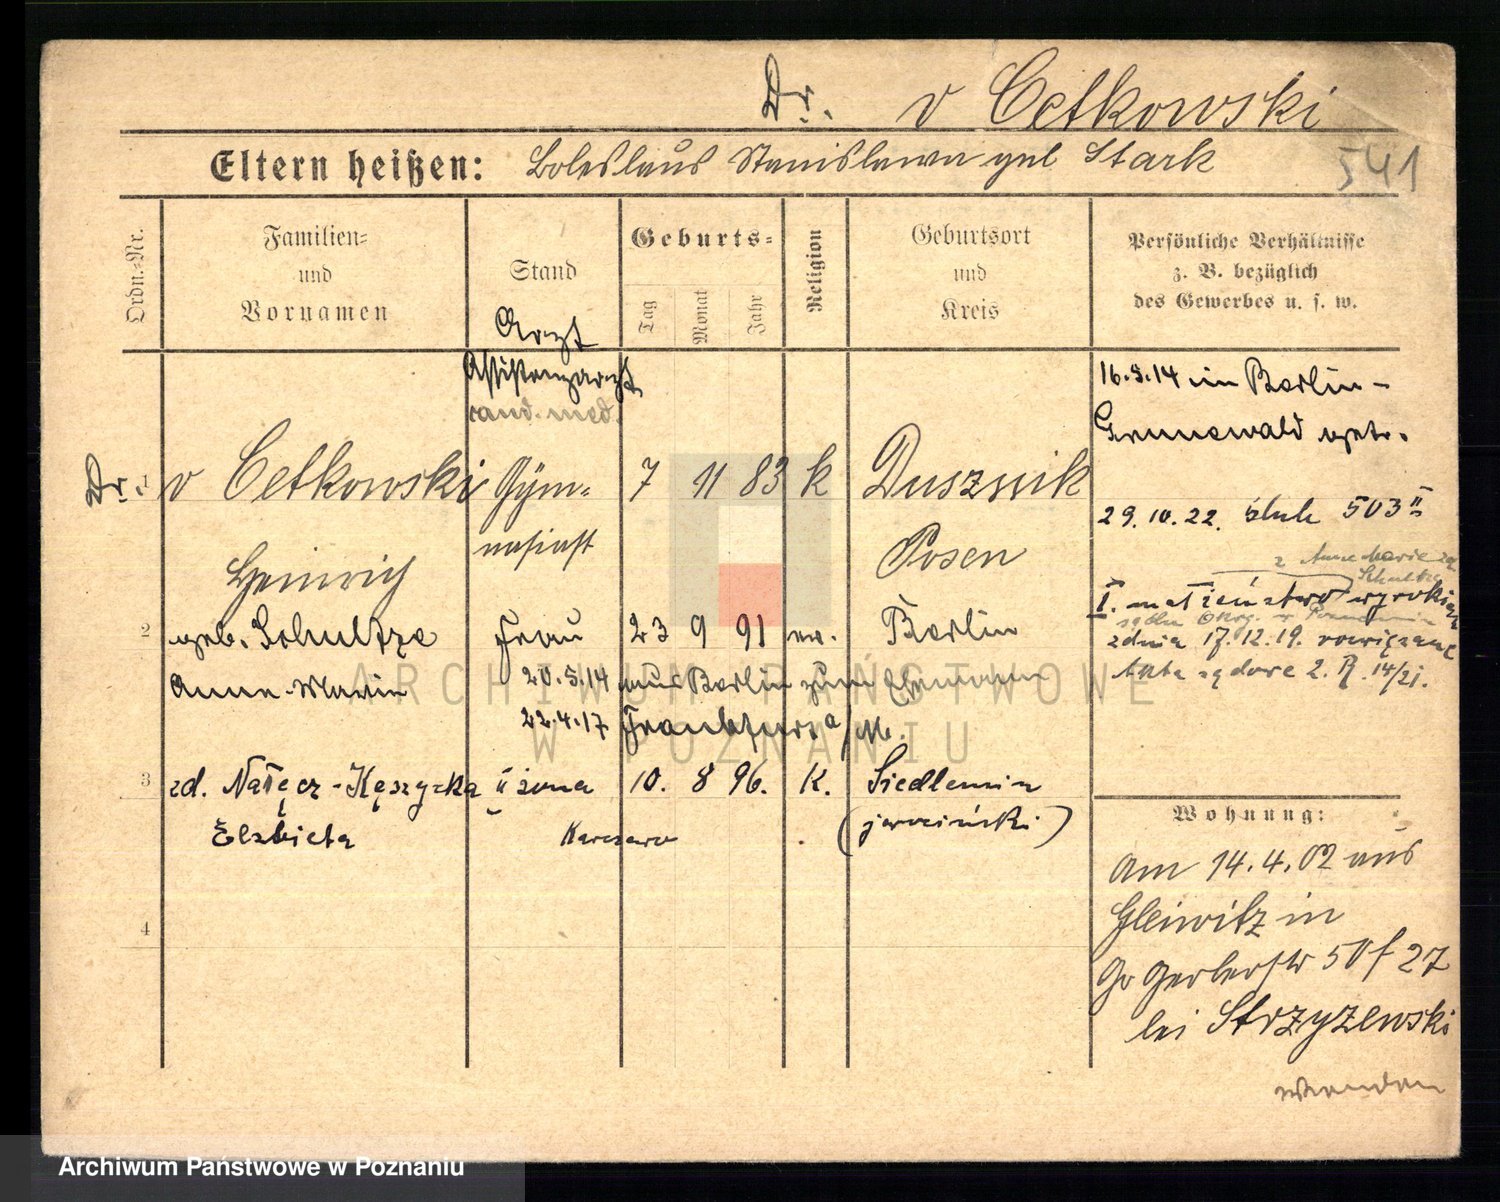 Dr. v Cetkowski
Eltern heißen: Boleslaus Stanislawa geb Stark
541
Ordn.-Nr.
Familien-
und
Vornamen
Stand
Geburts-
Tag
Monat
Jahr
Religion
Geburtsort
und
Kreis
Persönliche Verhältnisse
z. B. bezüglich
des Gewerbes u. s. w.
Arzt
Assistenzarzt
cand. med.
Dr. 1 v Cetkowski Gym- 7 11 83 k Dusznik
nasiast Posen
Heinrich
2 geb. Schultze Frau 23 9 91 ev. Berlin
Anna-Marie 20.5.14 aus Berlin zum Ehemann
22.4.17 Frankfurt a/M.
3 zd. Nałęcz-Kęszycka II żona 10. 8 96. K. Siedlemin
Elżbieta (jarociński)
4
16.5.14 in Berlin-
Grunewald getr.
29.10.22. ślub 503 II
z Anne Marie
Schultze
I. małżeństwo wyrokiem
zdnia 17.12.19. rozwiązane
Akta sądowe 2. R. 14/21.
Wohnung:
Am 14.4.02 aus
Gleiwitz in
Gr Gerberstr 50 f 27
bei Strzyzewski
wenden
ARCHIWUM PAŃSTWOWE
W POZNANIU
Archiwum Państwowe w Poznaniu